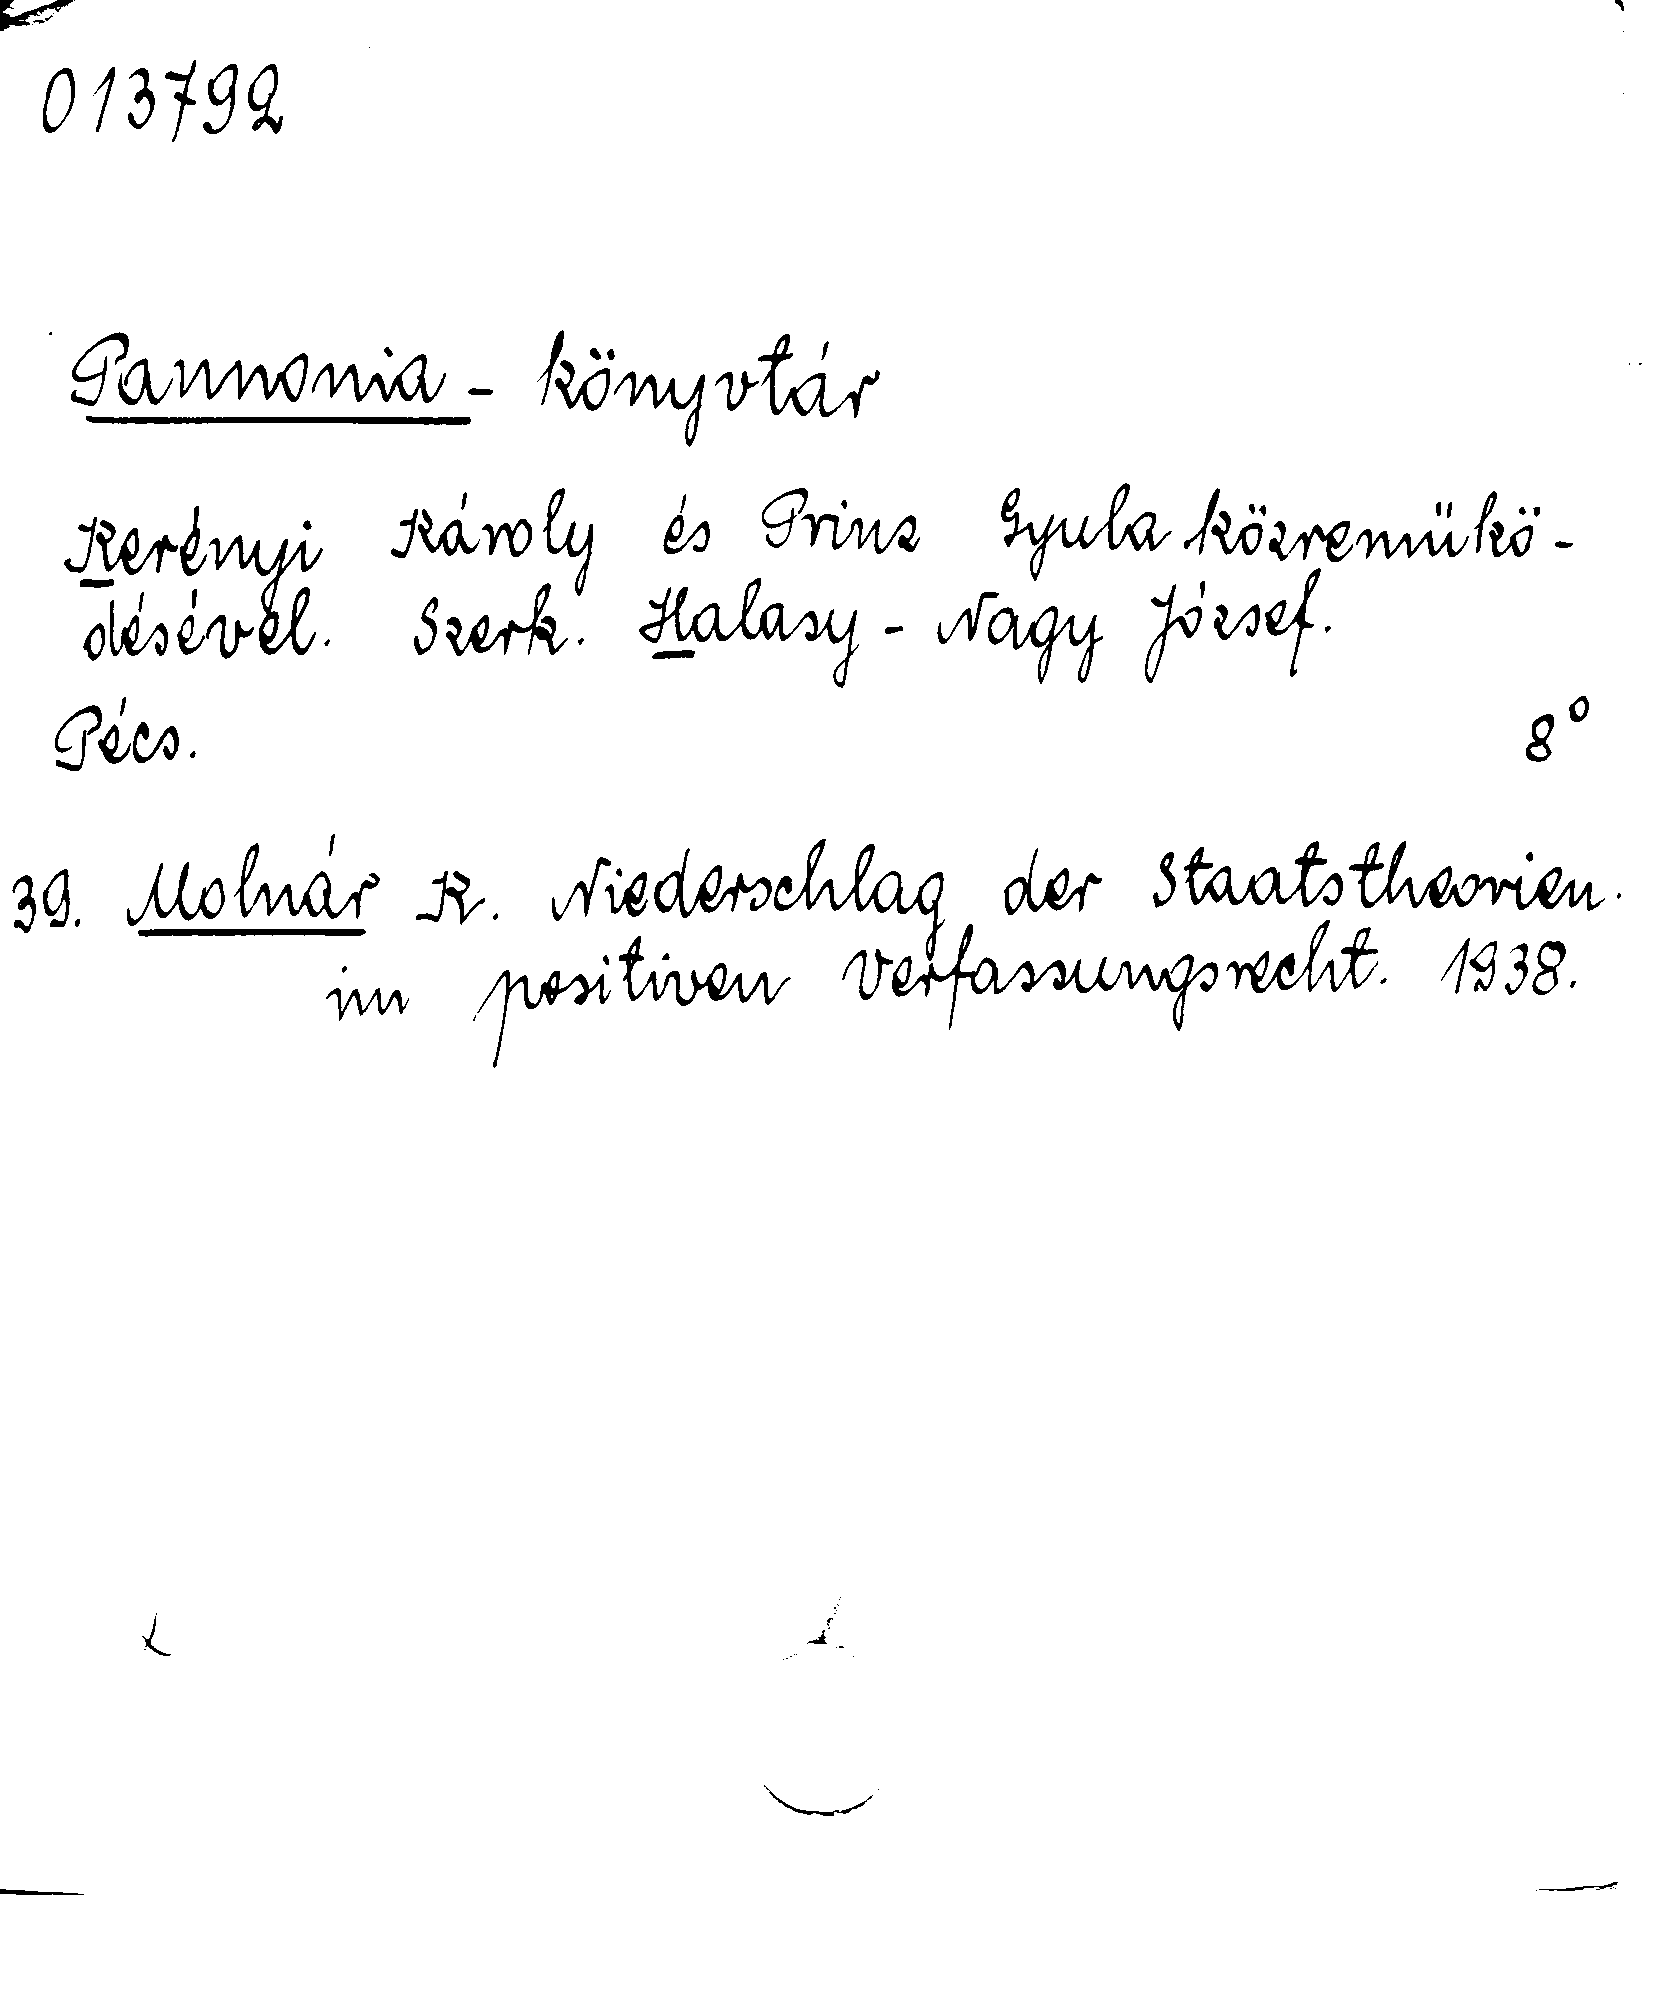 013792
Pannonia - könyvtár
Kerényi Károly és Prinz Gyula közremükö-
désével. Szerk. Halasy - Nagy József.
Pécs. 8°
39. Molnár K. Niederschlag der Staatstheorien.
im positiven Verfassungsrecht. 1938.